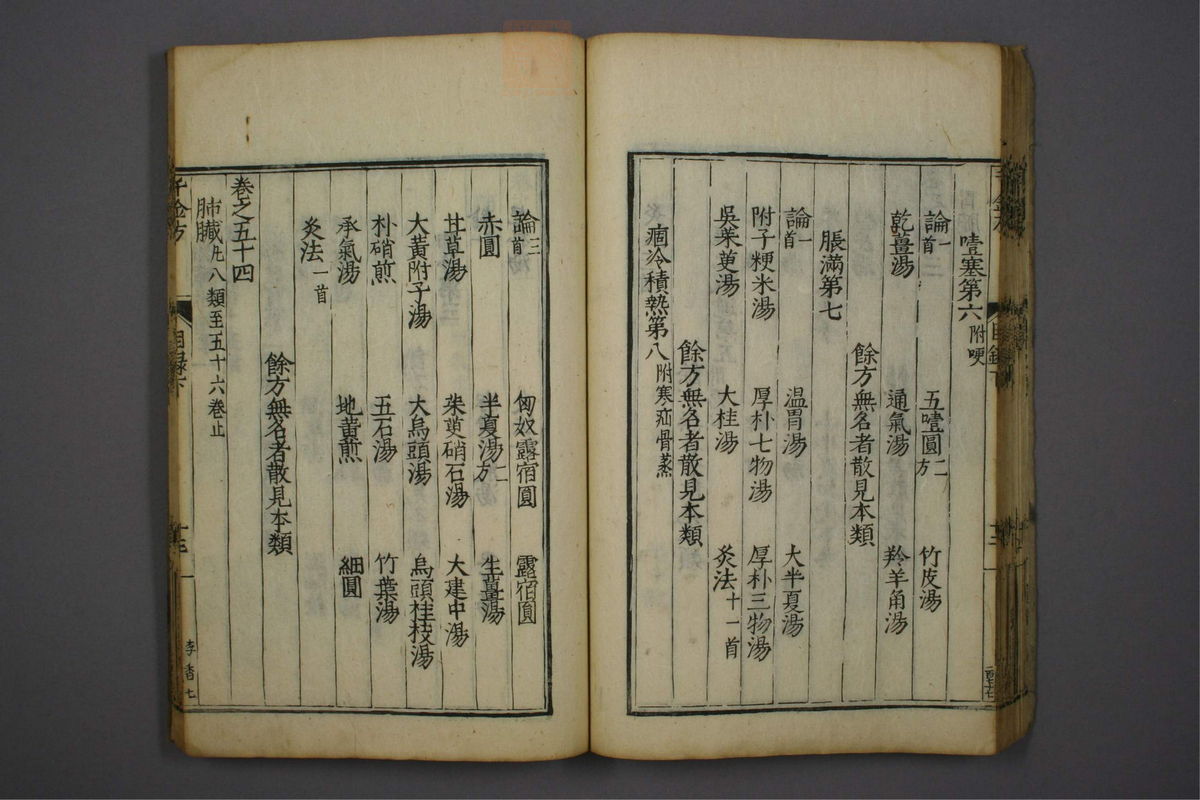 噎塞第六附哽
論一首 五噎圓二方 竹皮湯
乾薑湯 通氣湯 羚羊角湯
餘方無名者散見本類
脹滿第七
論一首 温胃湯 大半夏湯
附子粳米湯 厚朴七物湯 厚朴三物湯
吳茱萸湯 大桂湯 灸法十一首
餘方無名者散見本類
痼冷積熱第八附寒疝骨蒸
論三首 匈奴露宿圓 露宿圓
赤圓 半夏湯二方 生薑湯
甘草湯 茱萸硝石湯 大建中湯
大黃附子湯 大烏頭湯 烏頭桂枝湯
朴硝煎 五石湯 竹葉湯
承氣湯 地黃煎 細圓
灸法一首
餘方無名者散見本類
卷之五十四
肺臟凡八類至五十六卷止
千金方 目録下 十七 李香七